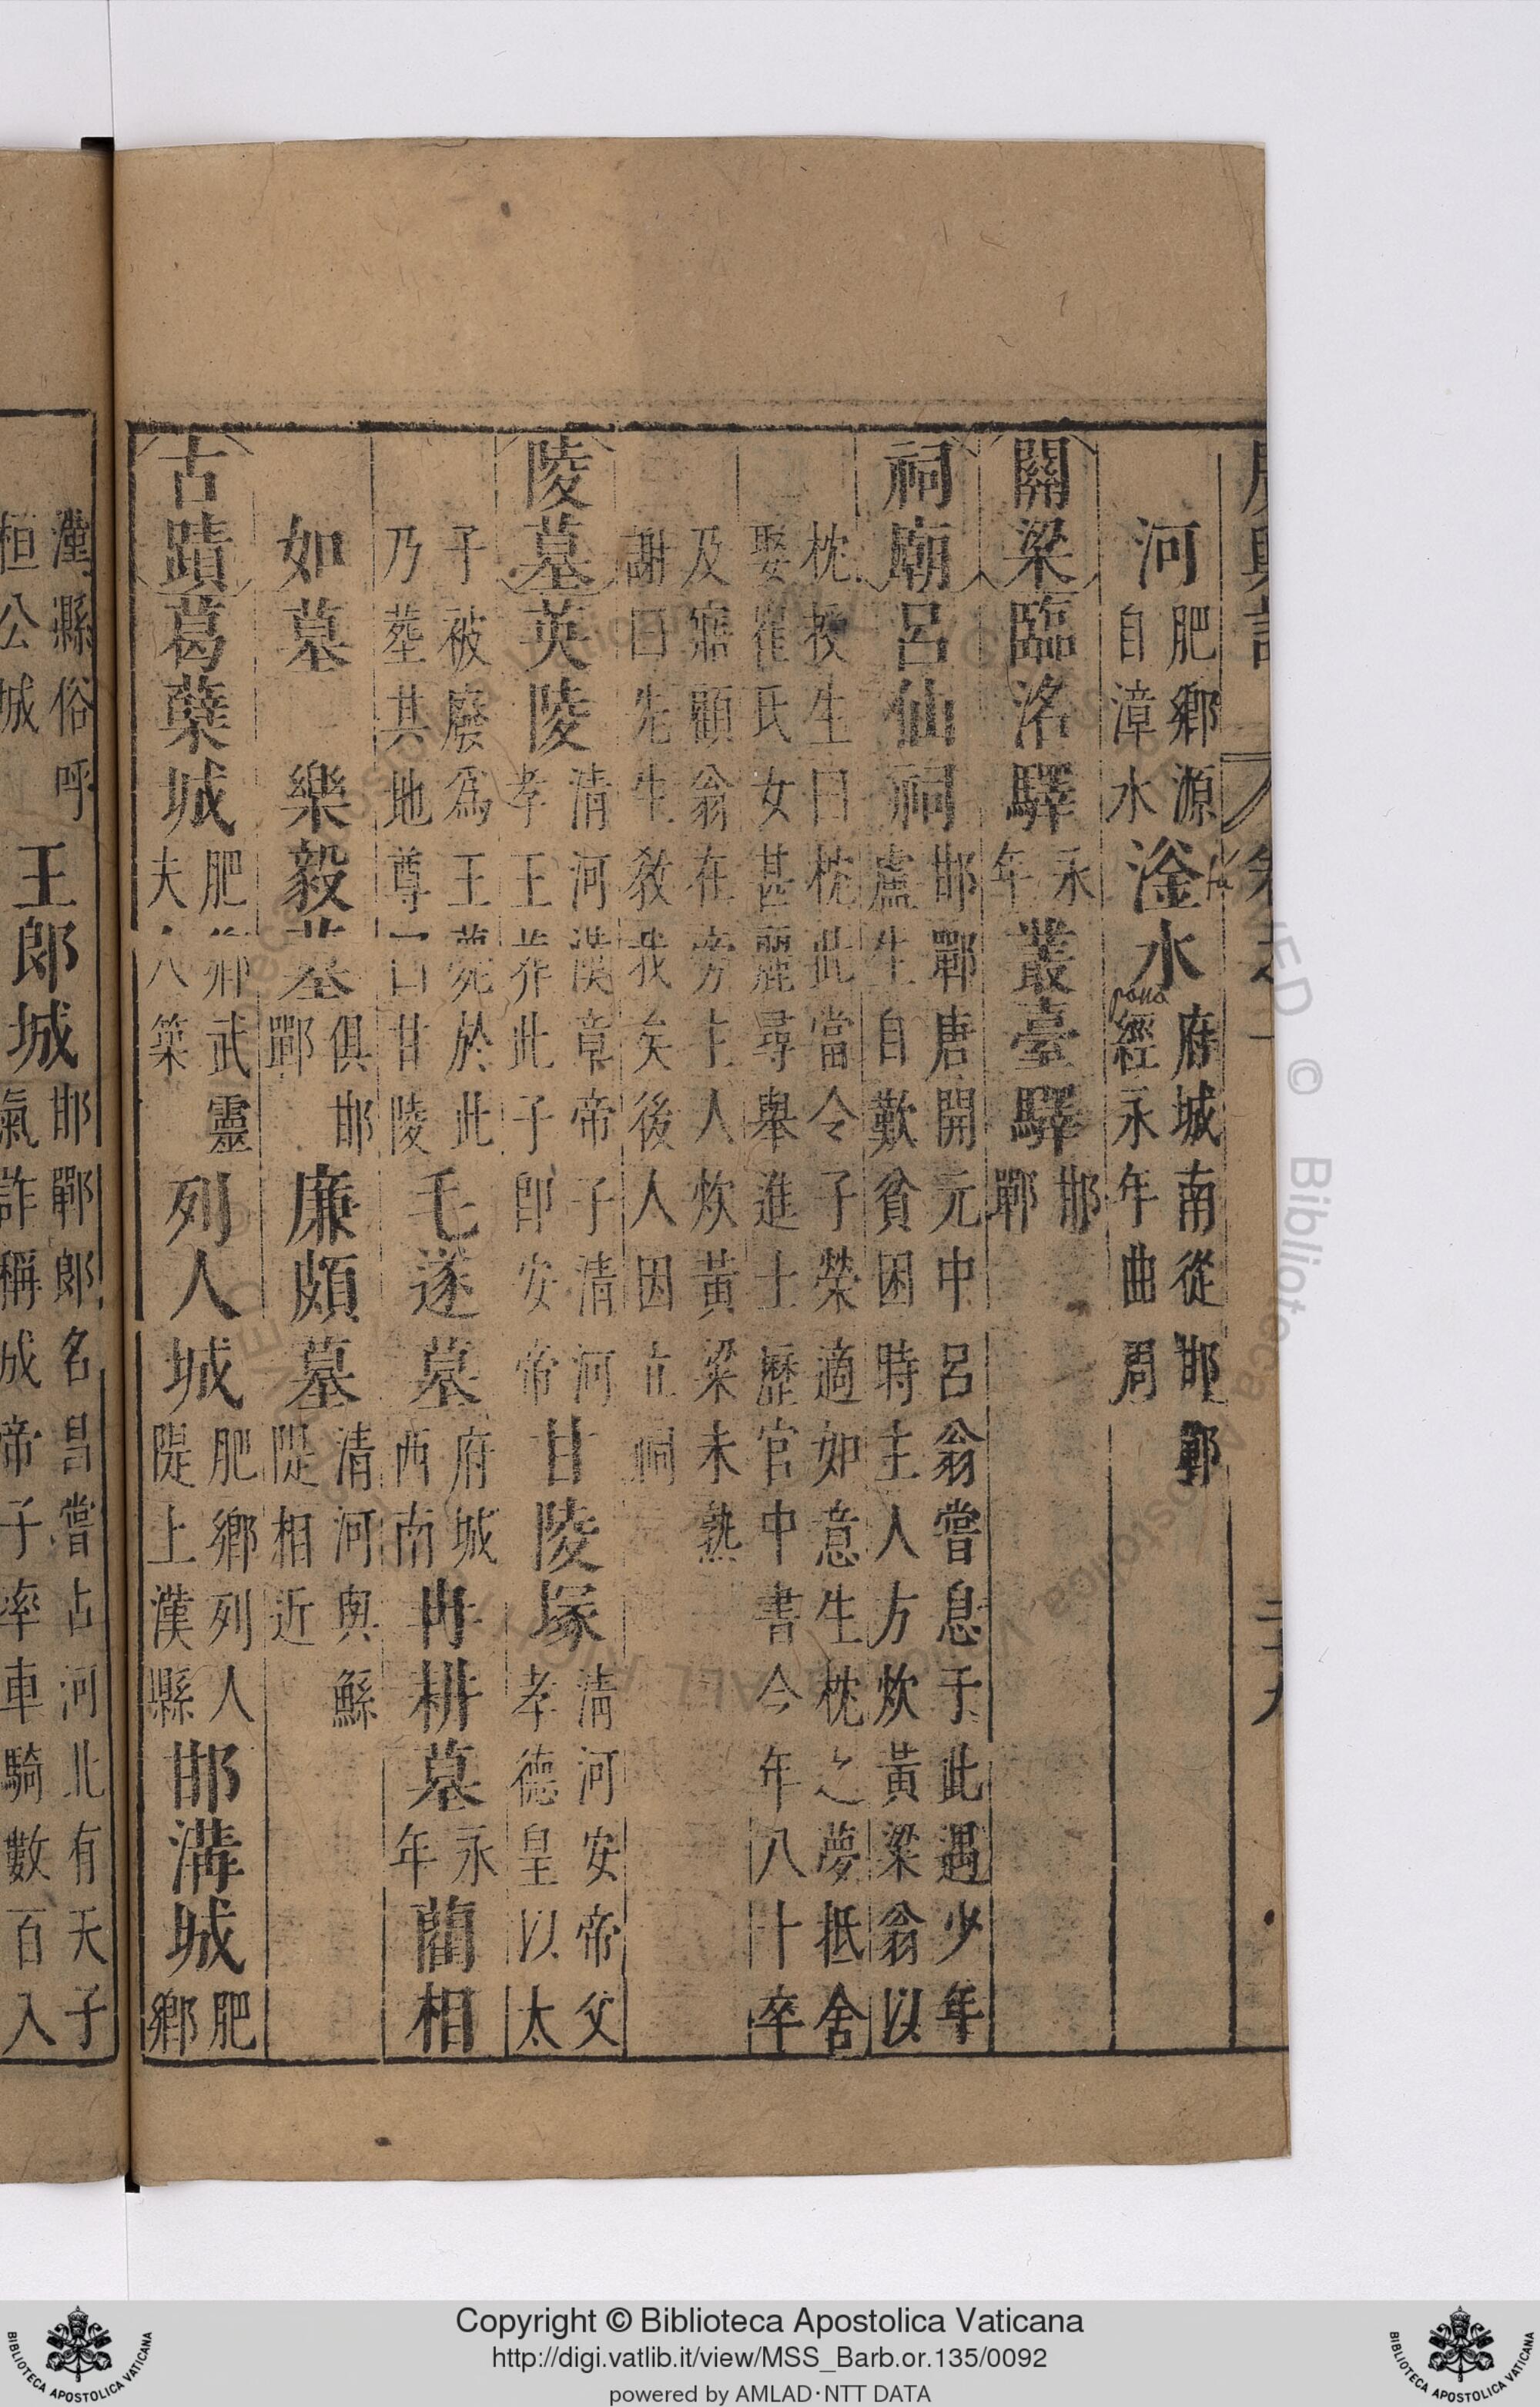 河肥鄉源自漳水滏水府城南從邯鄲經永年曲周
關梁臨洺驛永年叢臺驛邯鄲
祠廟呂仙祠邯鄲唐開元中呂翁嘗息于此遇少年盧生自歎貧困時主人方炊黃粱翁以
枕授生曰枕此當令子榮適如意生枕之夢抵舍娶崔氏女甚麗尋舉進士歷官中書令年八十卒
及寤顧翁在旁主人炊黃粱未熟謝曰先生教我矣後人因立祠
陵墓英陵清河漢章帝子清河孝王葬此子即安帝甘陵塚清河安帝父孝德皇以太
子被廢為王薨於此乃塟其地尊曰甘陵毛遂墓府城西南冉耕墓永年藺相
如墓樂毅墓俱邯鄲廉頗墓清河與鯀隄相近
古蹟葛蘖城肥鄉武靈夫人築列人城肥鄉列人隄上漢縣邯溝城肥鄉
瀍縣俗呼桓公城王郎城邯鄲郎名昌嘗占河北有天子氣詐稱成帝子率車騎數百入
Copyright © Biblioteca Apostolica Vaticana
http://digi.vatlib.it/view/MSS_Barb.or.135/0092
powered by AMLAD·NTT DATA
BIBLIOTECA APOSTOLICA VATICANA
BIBLIOTECA APOSTOLICA VATICANA